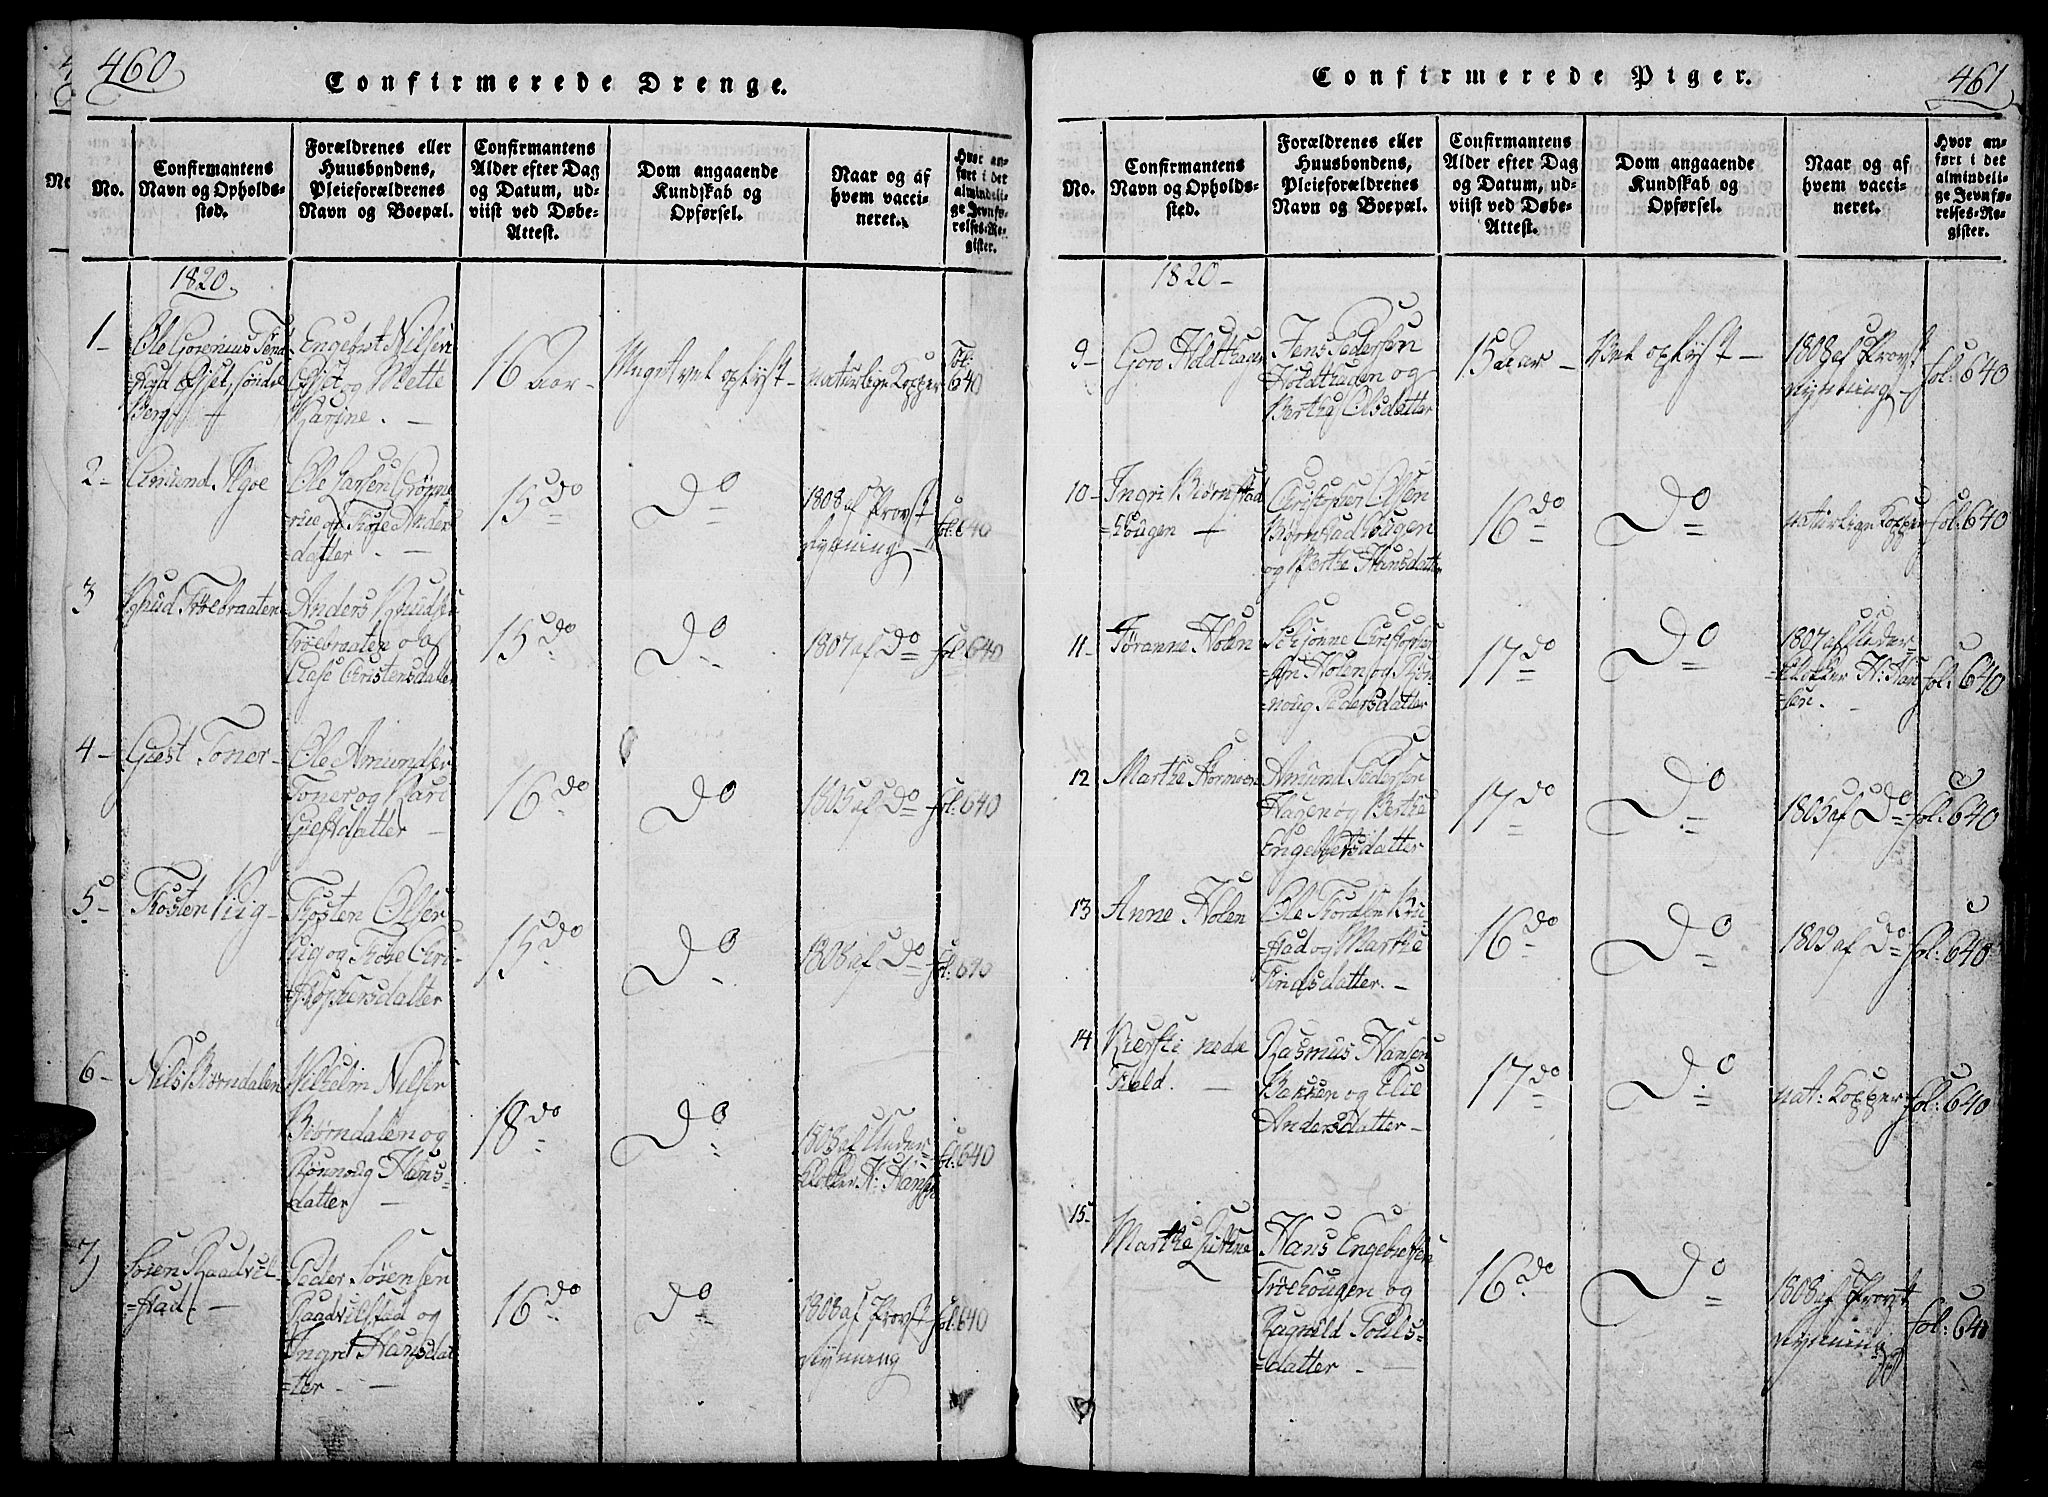 460
Confirmerede Drenge.
No.
Confirmantens
Navn og Opholds-
sted.
Forældrenes eller
Huusbondens,
Pleieforældrenes
Navn og Boepæl.
Confirmantens
Alder efter Dag
og Datum, ud-
viist ved Døbe-
Attest.
Dom angaaende
Kundskab og
Opførsel.
Naar og af
hvem vacci-
neret.
Hvor an-
ført i det
almindeli-
ge Jevnfø-
relses-Re-
gister.
1820
1-
Ole
Berg
Engebret Nilsen
og Mette
Karine.
16 Aar-
Meget vel oplyst-
naturlige Kopper
fol:
640
2-
Amund
Ole Larsen Grønne
Anders
=datter
15 do
Do
1808 af Provst
Nyrning
fol: 640
3
Knud Trøebraaten
Anders Knudsen
Trøebraaten og
Aase Christensdatter
15 do
Do
1807 af Do
fol: 640
4-
Giest Toner-
Ole Amundsen
Toner og Kari
Giestdatter
16 do
Do
1805 af Do
fol: 640
5-
Tosten
Tosten Olsen
og
16 do
Do
1808 af Do
fol: 640
6-
Nils Biørndalen
Wilhelm Nilsen
Biørndalen og
Rønnoug Hans-
datter
18 do
Do
1805 af Under-
=klokker H: Hansen
fol: 640
7
Søren Raadvil-
=stad. -
Peder Sørensen
Raadvilstad og
Ingri Hansdat
=ter. -
16 do
Do
1808 af Provst
Nyrning
fol: 640
461
Confirmerede Piger.
No.
Confirmantens
Navn og Opholds-
sted.
Forældrenes eller
Huusbondens,
Pleieforældrenes
Navn og Boepæl.
Confirmantens
Alder efter Dag
og Datum, ud-
viist ved Døbe-
Attest.
Dom angaaende
Kundskab og
Opførsel.
Naar og af
hvem vacci-
neret.
Hvor an-
ført i det
almindeli-
ge Jevnfø-
relses-Re-
gister.
1820-
9-
Goro Holdthagen
Jens Pedersen
Holdthagen og
Berthe Olsdatter
15 Aar-
Vel oplyst-
1808 af Provst
Nyrning
fol: 640
10-
Ingri Biørnstad
=hougen
Christopher Olsen
Biørnstadhougen
og Berthe Hansdatter
16 do
Do
naturlige Kopper
fol: 640
11-
Tøranne Holen
Christopher
=sen Holen og Røn-
=noug Pedersdatter
17 do
Do
1807 af Under-
=klokker H: Han
=sen.
fol: 640
12
Marthe
Amund Pedersen
Hagen og Berthe
Engebretsdatter
17 do
Do
1805 af Do
fol: 640
13
Anne Holen
Ole Tordsen
=stad og Marthe
datter. -
16 do
Do
1809 af Do
fol: 640
14
Kiersti nedre
Field. -
Rasmus Hansen
Bakken og Elie
Andersdatter-
17 do
Do
nat: Kopper
fol: 640
15-
Marthe
Hans Engebretsen
Trøehougen og
Ragnild Pouls-
=datter -
16 do
Do
1808 af Provst
Nyrning
fol: 640